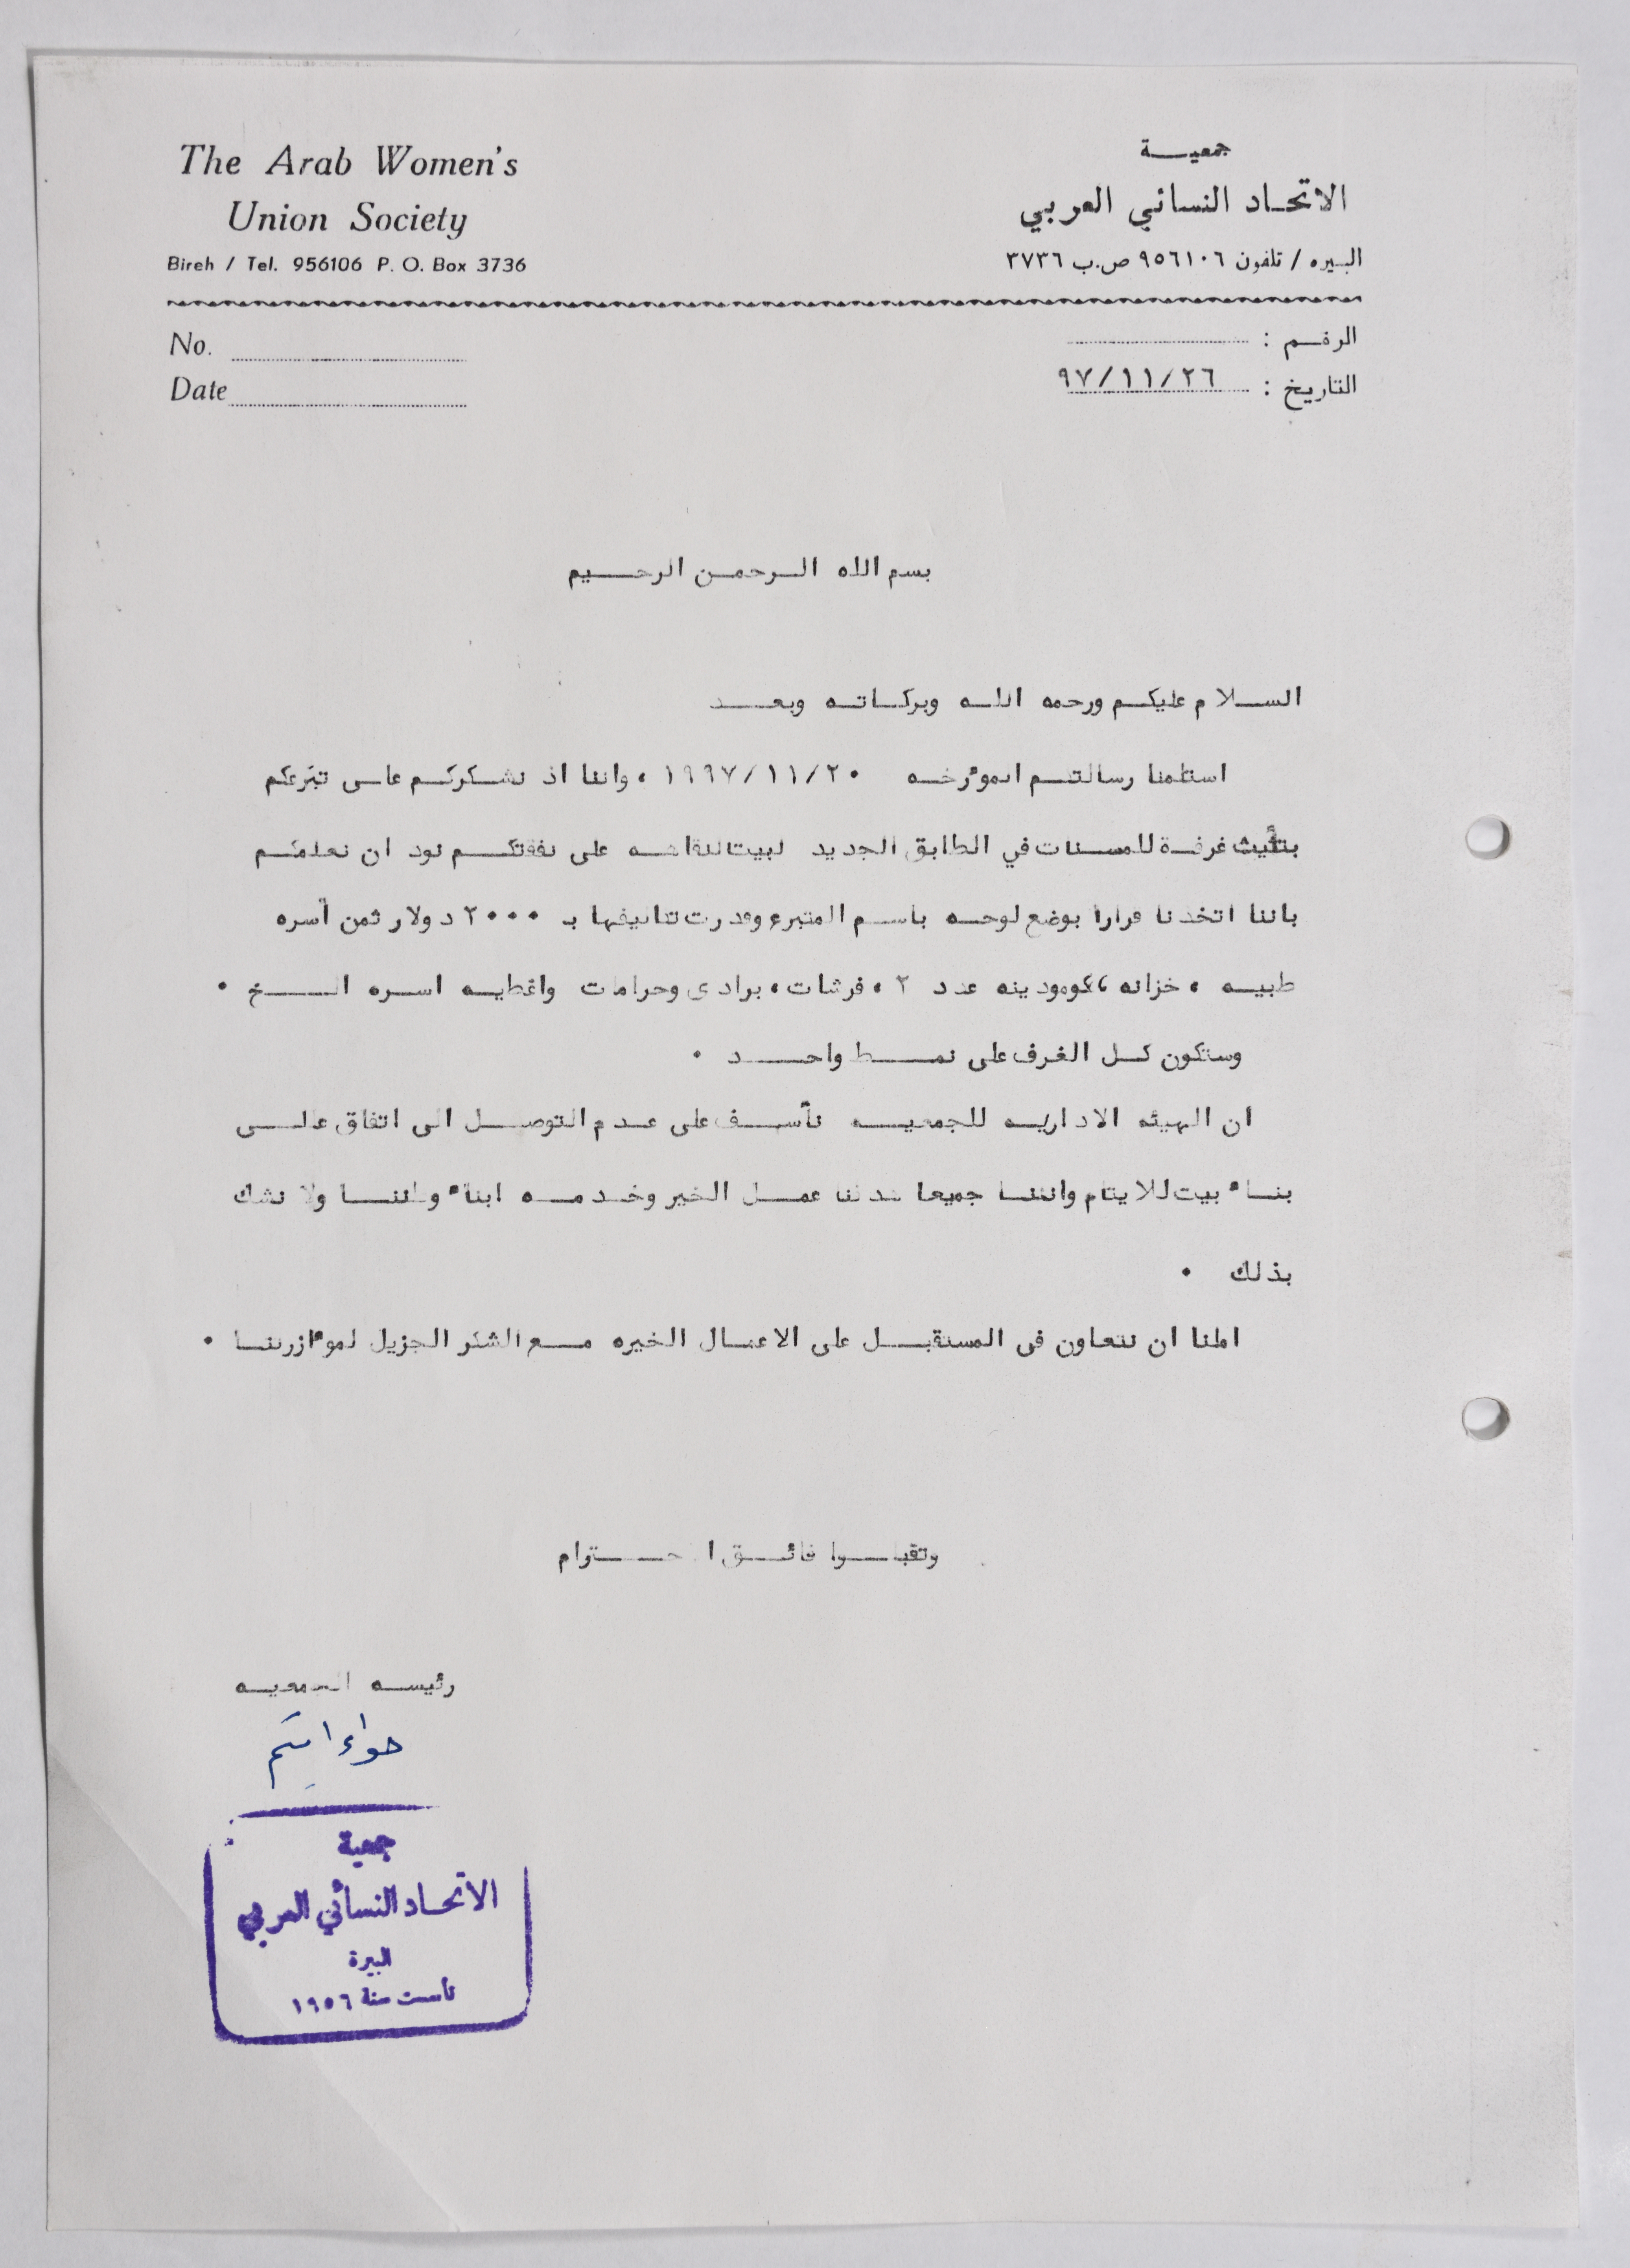 The Arab Women's
Union Society
Bireh / Tel. 956106 P. O. Box 3736
جمعية
الاتحاد النسائي العربي
البيره / تلفون ٩٥٦١٠٦ ص.ب ٣٧٣٦
No.
Date
الرقم :
التاريخ : ٩٧/١١/٢٦
بسم الله الرحمن الرحيم
السلام عليكم ورحمه الله وبركاته وبعد
استلمنا رسالتكم المؤرخه ١٩٩٧/١١/٢٠ ، واننا اذ نشكركم على تبرعكم
بتأثيث غرفة للمسنات في الطابق الجديد لبيت النقاهه على نفقتكم نود ان نعلمكم
باننا اتخذنا قرارا بوضع لوحه باسم المتبرع وقدرت تكاليفها بـ ٢٠٠٠ دولار ثمن أسره
طبيه ، خزانه ، كومودينه عدد ٢ ، فرشات ، برادى وحرامات واغطيه اسره الخ .
وستكون كل الغرف على نمط واحد .
ان الهيئه الاداريه للجمعيه تأسف على عدم التوصل الى اتفاق على
بناء بيت للايتام واننا جميعا هدفنا عمل الخير وخدمه ابناء وطننا ولا نشك
بذلك .
املنا ان نتعاون فى المستقبل على الاعمال الخيره مع الشكر الجزيل لمؤازرتنا .
وتقبلوا فائق الاحترام
رئيسه الجمعيه
حواء
جمعية
الاتحاد النسائي العربي
البيرة
تأسست سنة ١٩٥٦